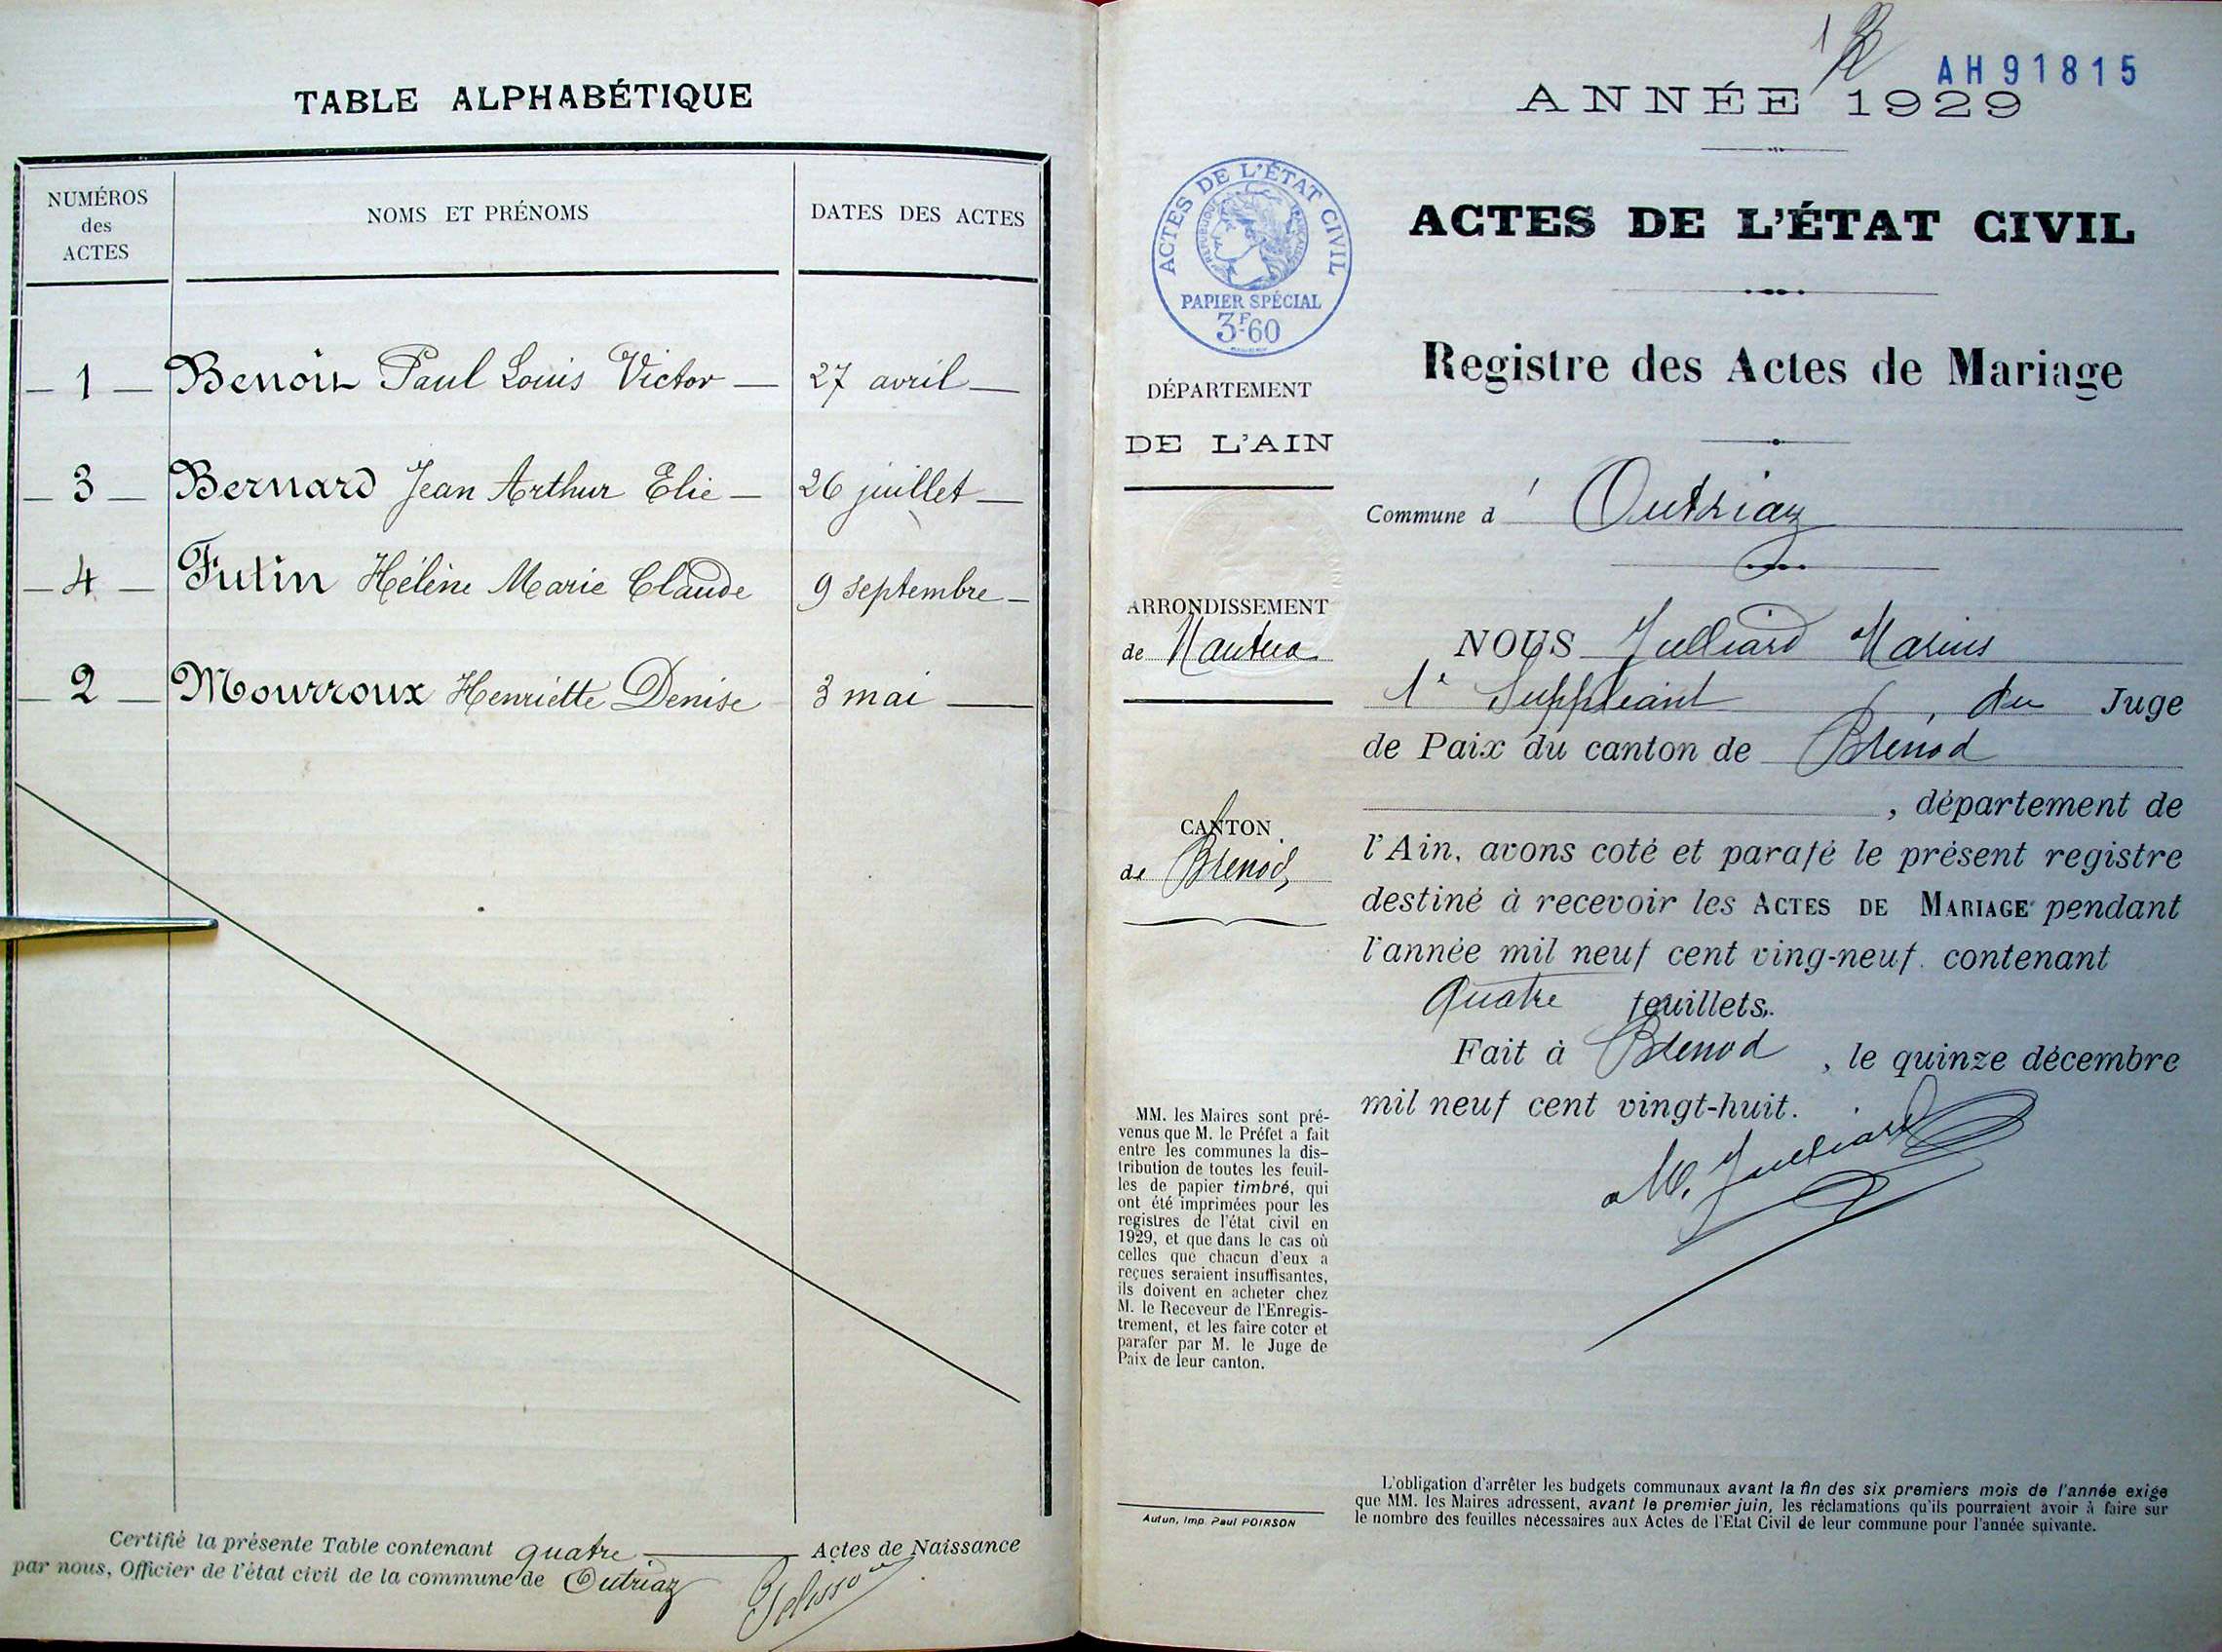 TABLE ALPHABÉTIQUE
NUMÉROS
des
ACTES
NOMS ET PRÉNOMS
DATES DES ACTES
1 Benoit Paul Louis Victor 27 avril
3 Bernard Jean Arthur Elie 26 juillet
4 Futin Hélène Marie Claude 9 septembre
2 Mourroux Henriette Denise 3 mai
Certifié la présente Table contenant quatre Actes de Naissance
par nous, Officier de l'état civil de la commune de Outriaz
AH91815
ANNÉE 1929
ACTES DE L'ÉTAT CIVIL
RÉPUBLIQUE FRANÇAISE
PAPIER SPÉCIAL
3F.60
ACTES DE L'ÉTAT CIVIL
Registre des Actes de Mariage
DÉPARTEMENT
DE L'AIN
Commune d' Outriaz
ARRONDISSEMENT
de Nantua
CANTON
de Brenod
NOUS Julliard Marius
1e Suppléant, du Juge
de Paix du canton de Brénod
, département de
l'Ain, avons coté et parafé le présent registre
destiné à recevoir les ACTES DE MARIAGE pendant
l'année mil neuf cent ving-neuf contenant
quatre feuillets.
Fait à Brénod, le quinze décembre
mil neuf cent vingt-huit.
M. Julliard
MM. les Maires sont pré-
venus que M. le Préfet a fait
entre les communes la dis-
tribution de toutes les feuil-
les de papier timbré, qui
ont été imprimées pour les
registres de l'état civil en
1929, et que dans le cas où
celles que chacun d'eux a
reçues seraient insuffisantes,
ils doivent en acheter chez
M. le Receveur de l'Enregis-
trement, et les faire coter et
parafer par M. le Juge de
Paix de leur canton.
Autun, Imp. Paul POIRSON
L'obligation d'arrêter les budgets communaux avant la fin des six premiers mois de l'année exige
que MM. les Maires adressent, avant le premier juin, les réclamations qu'ils pourraient avoir à faire sur
le nombre des feuilles nécessaires aux Actes de l'Etat Civil de leur commune pour l'année suivante.